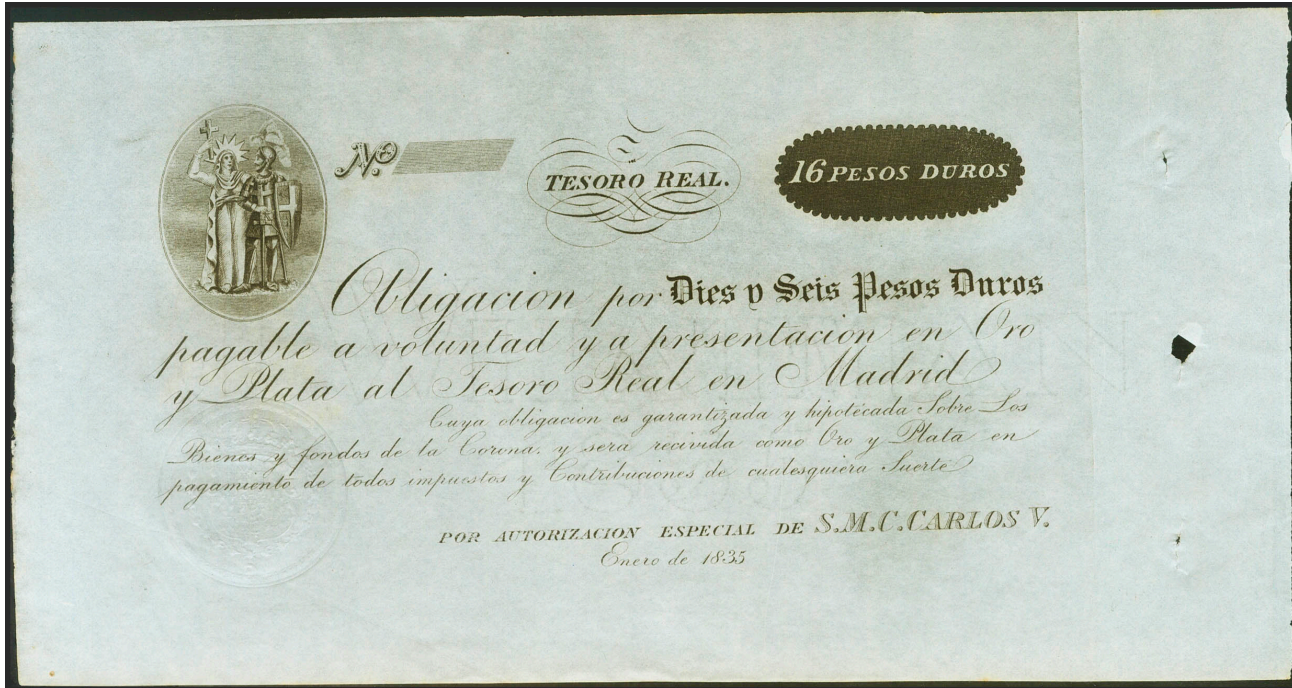 Nº
TESORO REAL.
16 PESOS DUROS
Obligacion por Dies y Seis Pesos Duros
pagable a voluntad y a presentacion en Oro
y Plata al Tesoro Real en Madrid
Cuya obligacion es garantizada y hipotécada Sobre Los
Bienes y fondos de la Corona, y será recivida como Oro y Plata en
pagamiento de todos impuestos y Contribuciones de cualesquiera Suerte
POR AUTORIZACION ESPECIAL DE S.M.C. CARLOS V.
Enero de 1835